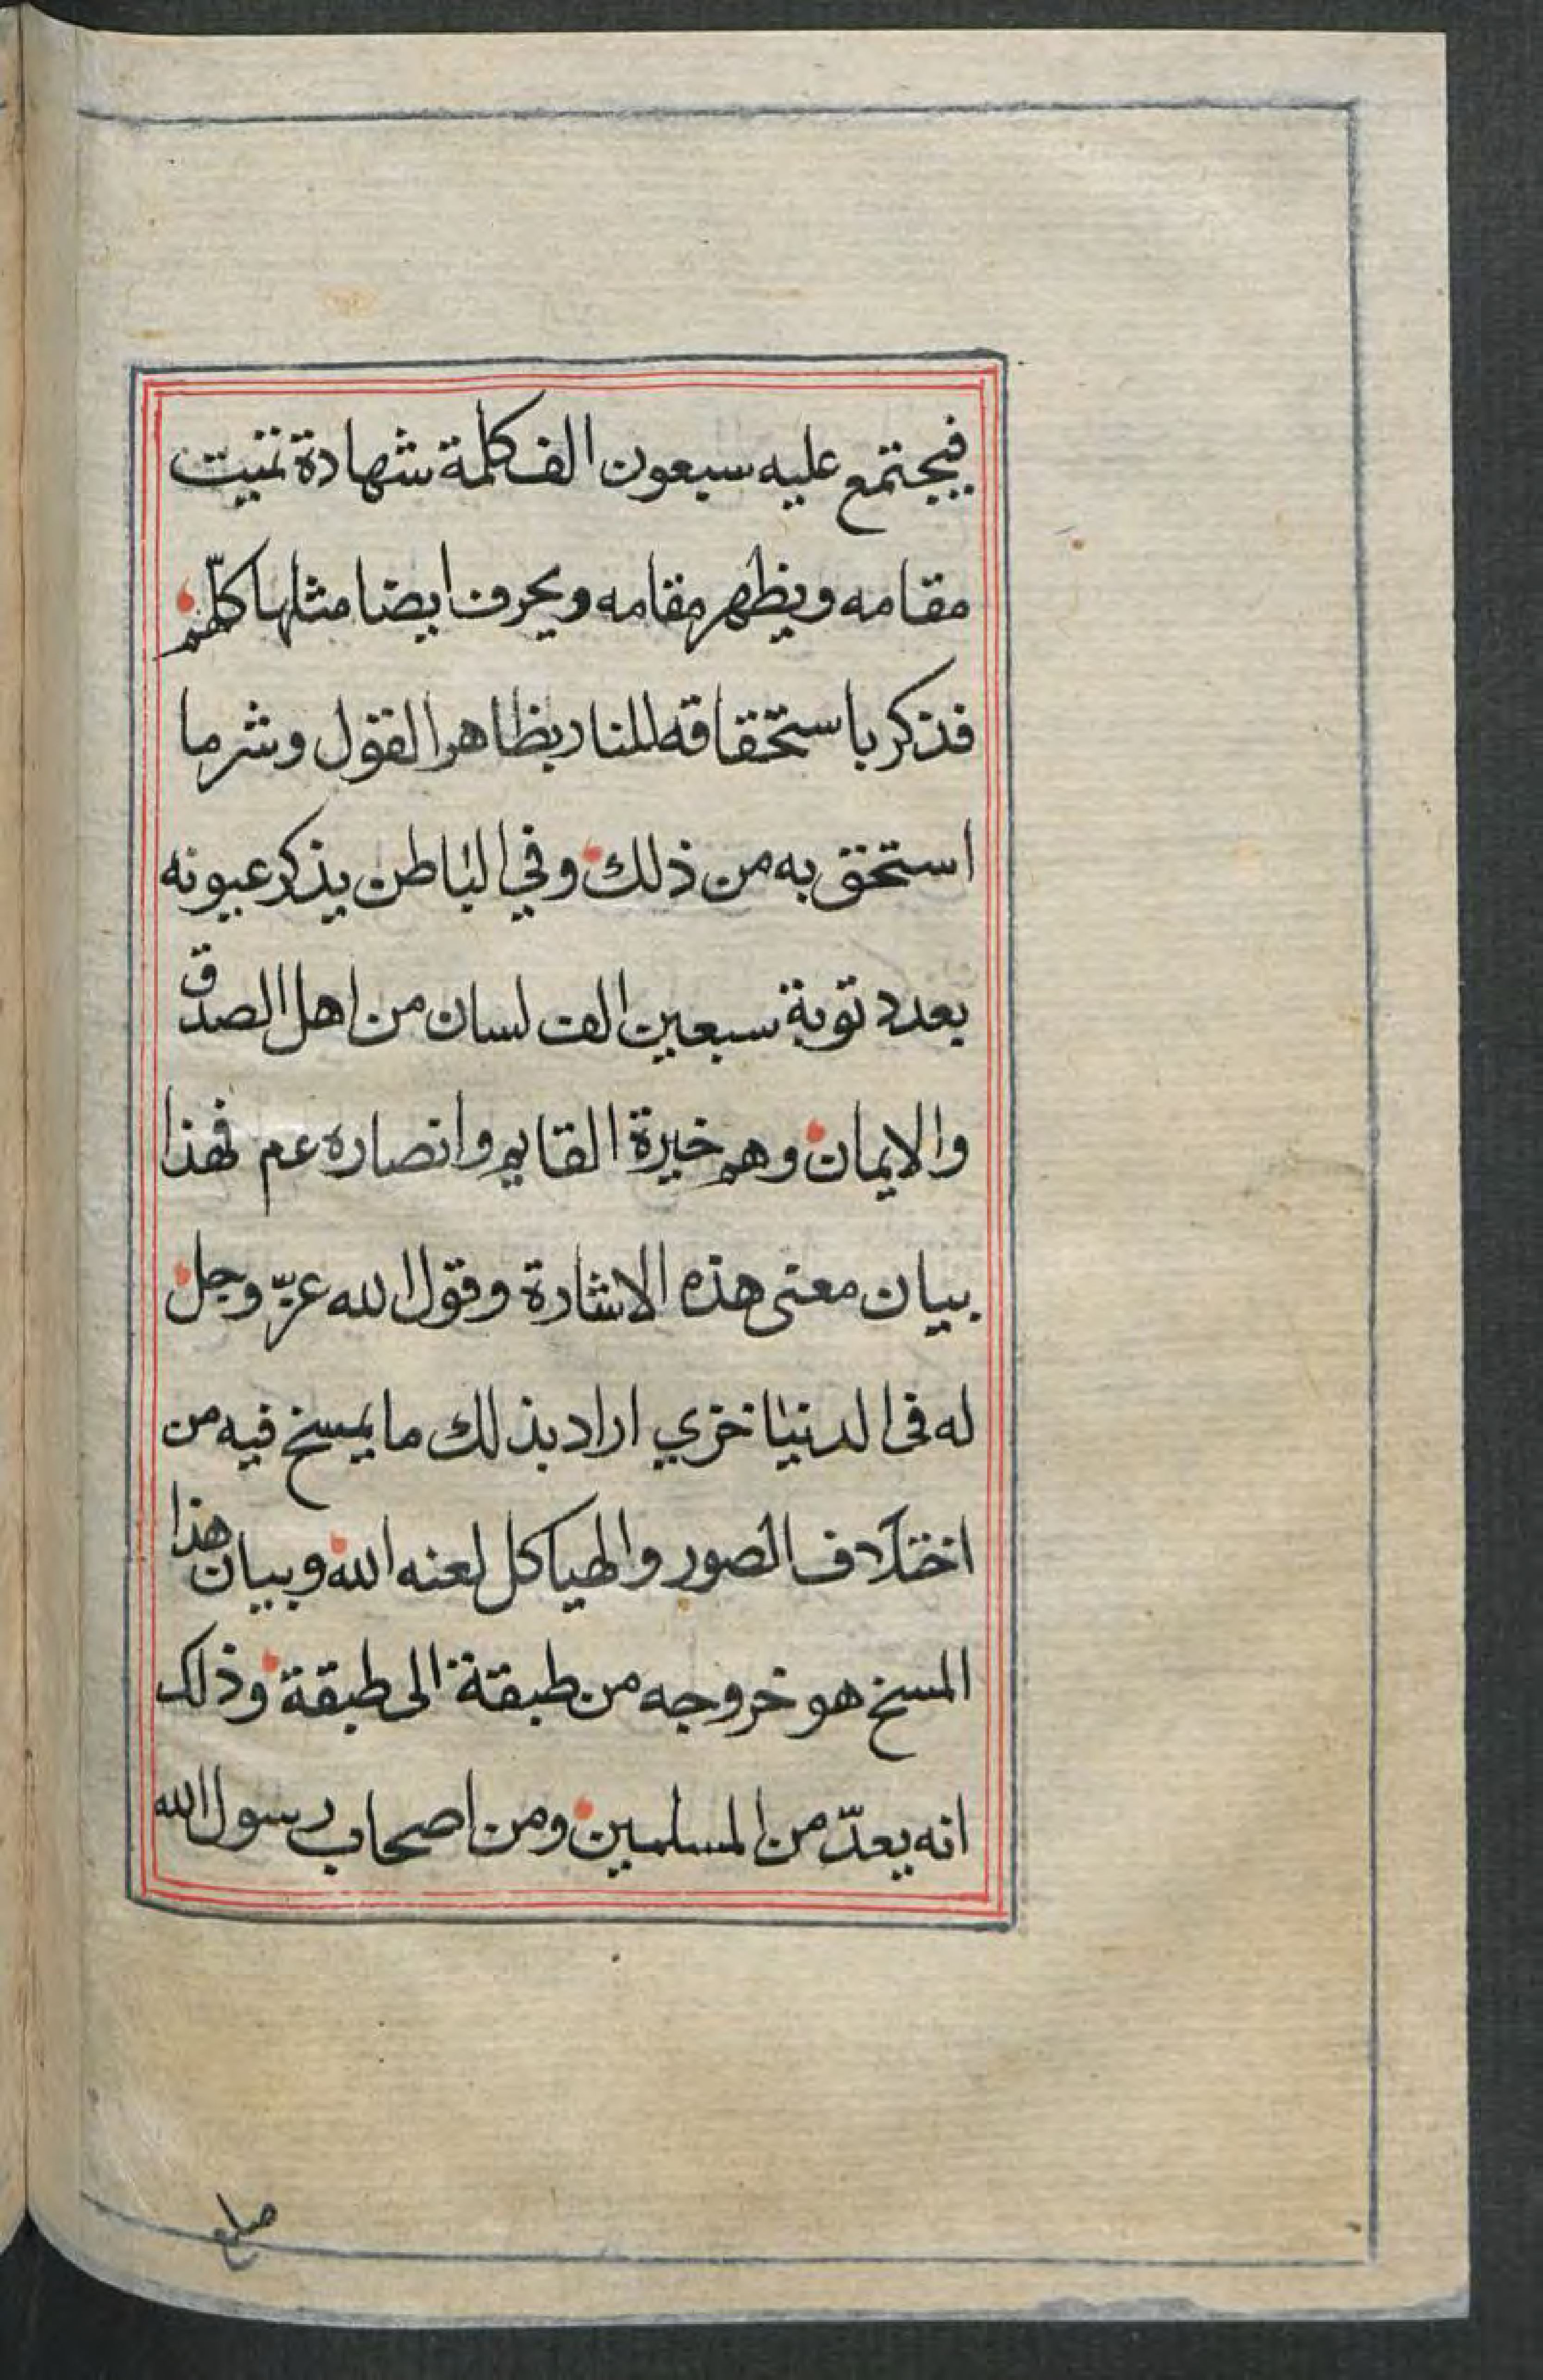 فيجتمع عليه سبعون الف كلمة شهادة تثبت
مقامه ويظهر مقامه ويحرف ايضا مثلها كلّهم
فذكر باستحقاقه للنار بظاهر القول وشر ما
استحق به من ذلك وفي الباطن يذكر عيوبه
بعدد توبة سبعين الف لسان من اهل الصدق
والايمان وهم خيرة القايم وانصاره عم فهذا
بيان معنى هذه الاشارة وقول الله عزّ وجل
له فى الدنيا خزي اراد بذلك ما يمسخ فيه من
اختلاف الصور والهياكل لعنه الله وبيان هذا
المسخ هو خروجه من طبقة الى طبقة وذلك
انه يعدّ من المسلمين ومن اصحاب رسول الله
صلع